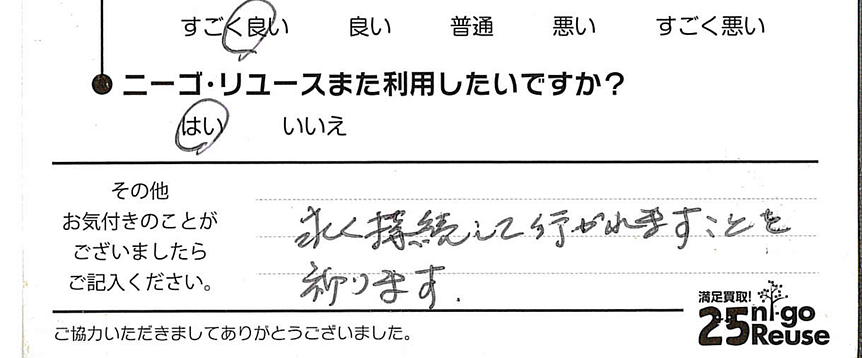 すごく良い 良い 普通 悪い すごく悪い
ニーゴ・リユースまた利用したいですか？
はい いいえ
その他
お気付きのことが
ございましたら
ご記入ください。
永く持続して行かれますことを
祈ります.
満足買取!
25 ni-go
Reuse
ご協力いただきましてありがとうございました。